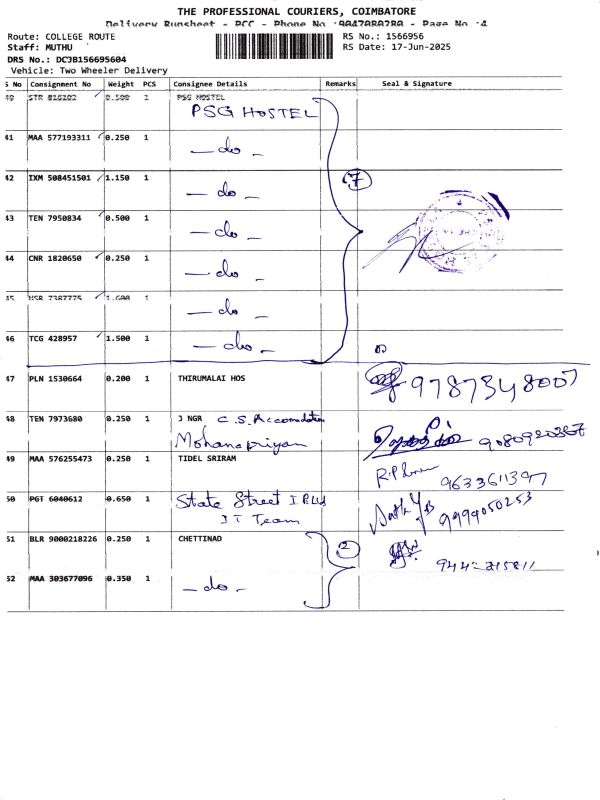 THE PROFESSIONAL COURIERS, COIMBATORE
Delivery Runsheet - PCC - Phone No : - Page No :4
Route: COLLEGE ROUTE RS No.: 1566956
Staff: MUTHU RS Date: 17-Jun-2025
DRS No.: DCJB156695604
Vehicle: Two Wheeler Delivery
S No Consignment No Weight PCS Consignee Details Remarks Seal & Signature
40 STR 0.500 1 PSG HOSTEL
PSG HOSTEL
41 MAA 577193311 0.250 1
— do —
42 IXM 508451501 1.150 1
— do — 7
43 TEN 7950834 0.500 1
— do —
44 CNR 1820650 0.250 1
— do —
45 1.600 1
— do —
46 TCG 428957 1.500 1
— do —
47 PLN 1530664 0.200 1 THIRUMALAI HOS
9787348007
48 TEN 7973680 0.250 1 J NGR C.S. Accomodation
Mohanapriyan
49 MAA 576255473 0.250 1 TIDEL SRIRAM
9633611397
50 PGT 6040612 0.650 1 State Street
IT Team
9999050253
51 BLR 9000218226 0.250 1 CHETTINAD 2
52 MAA 303677096 0.350 1
— do —